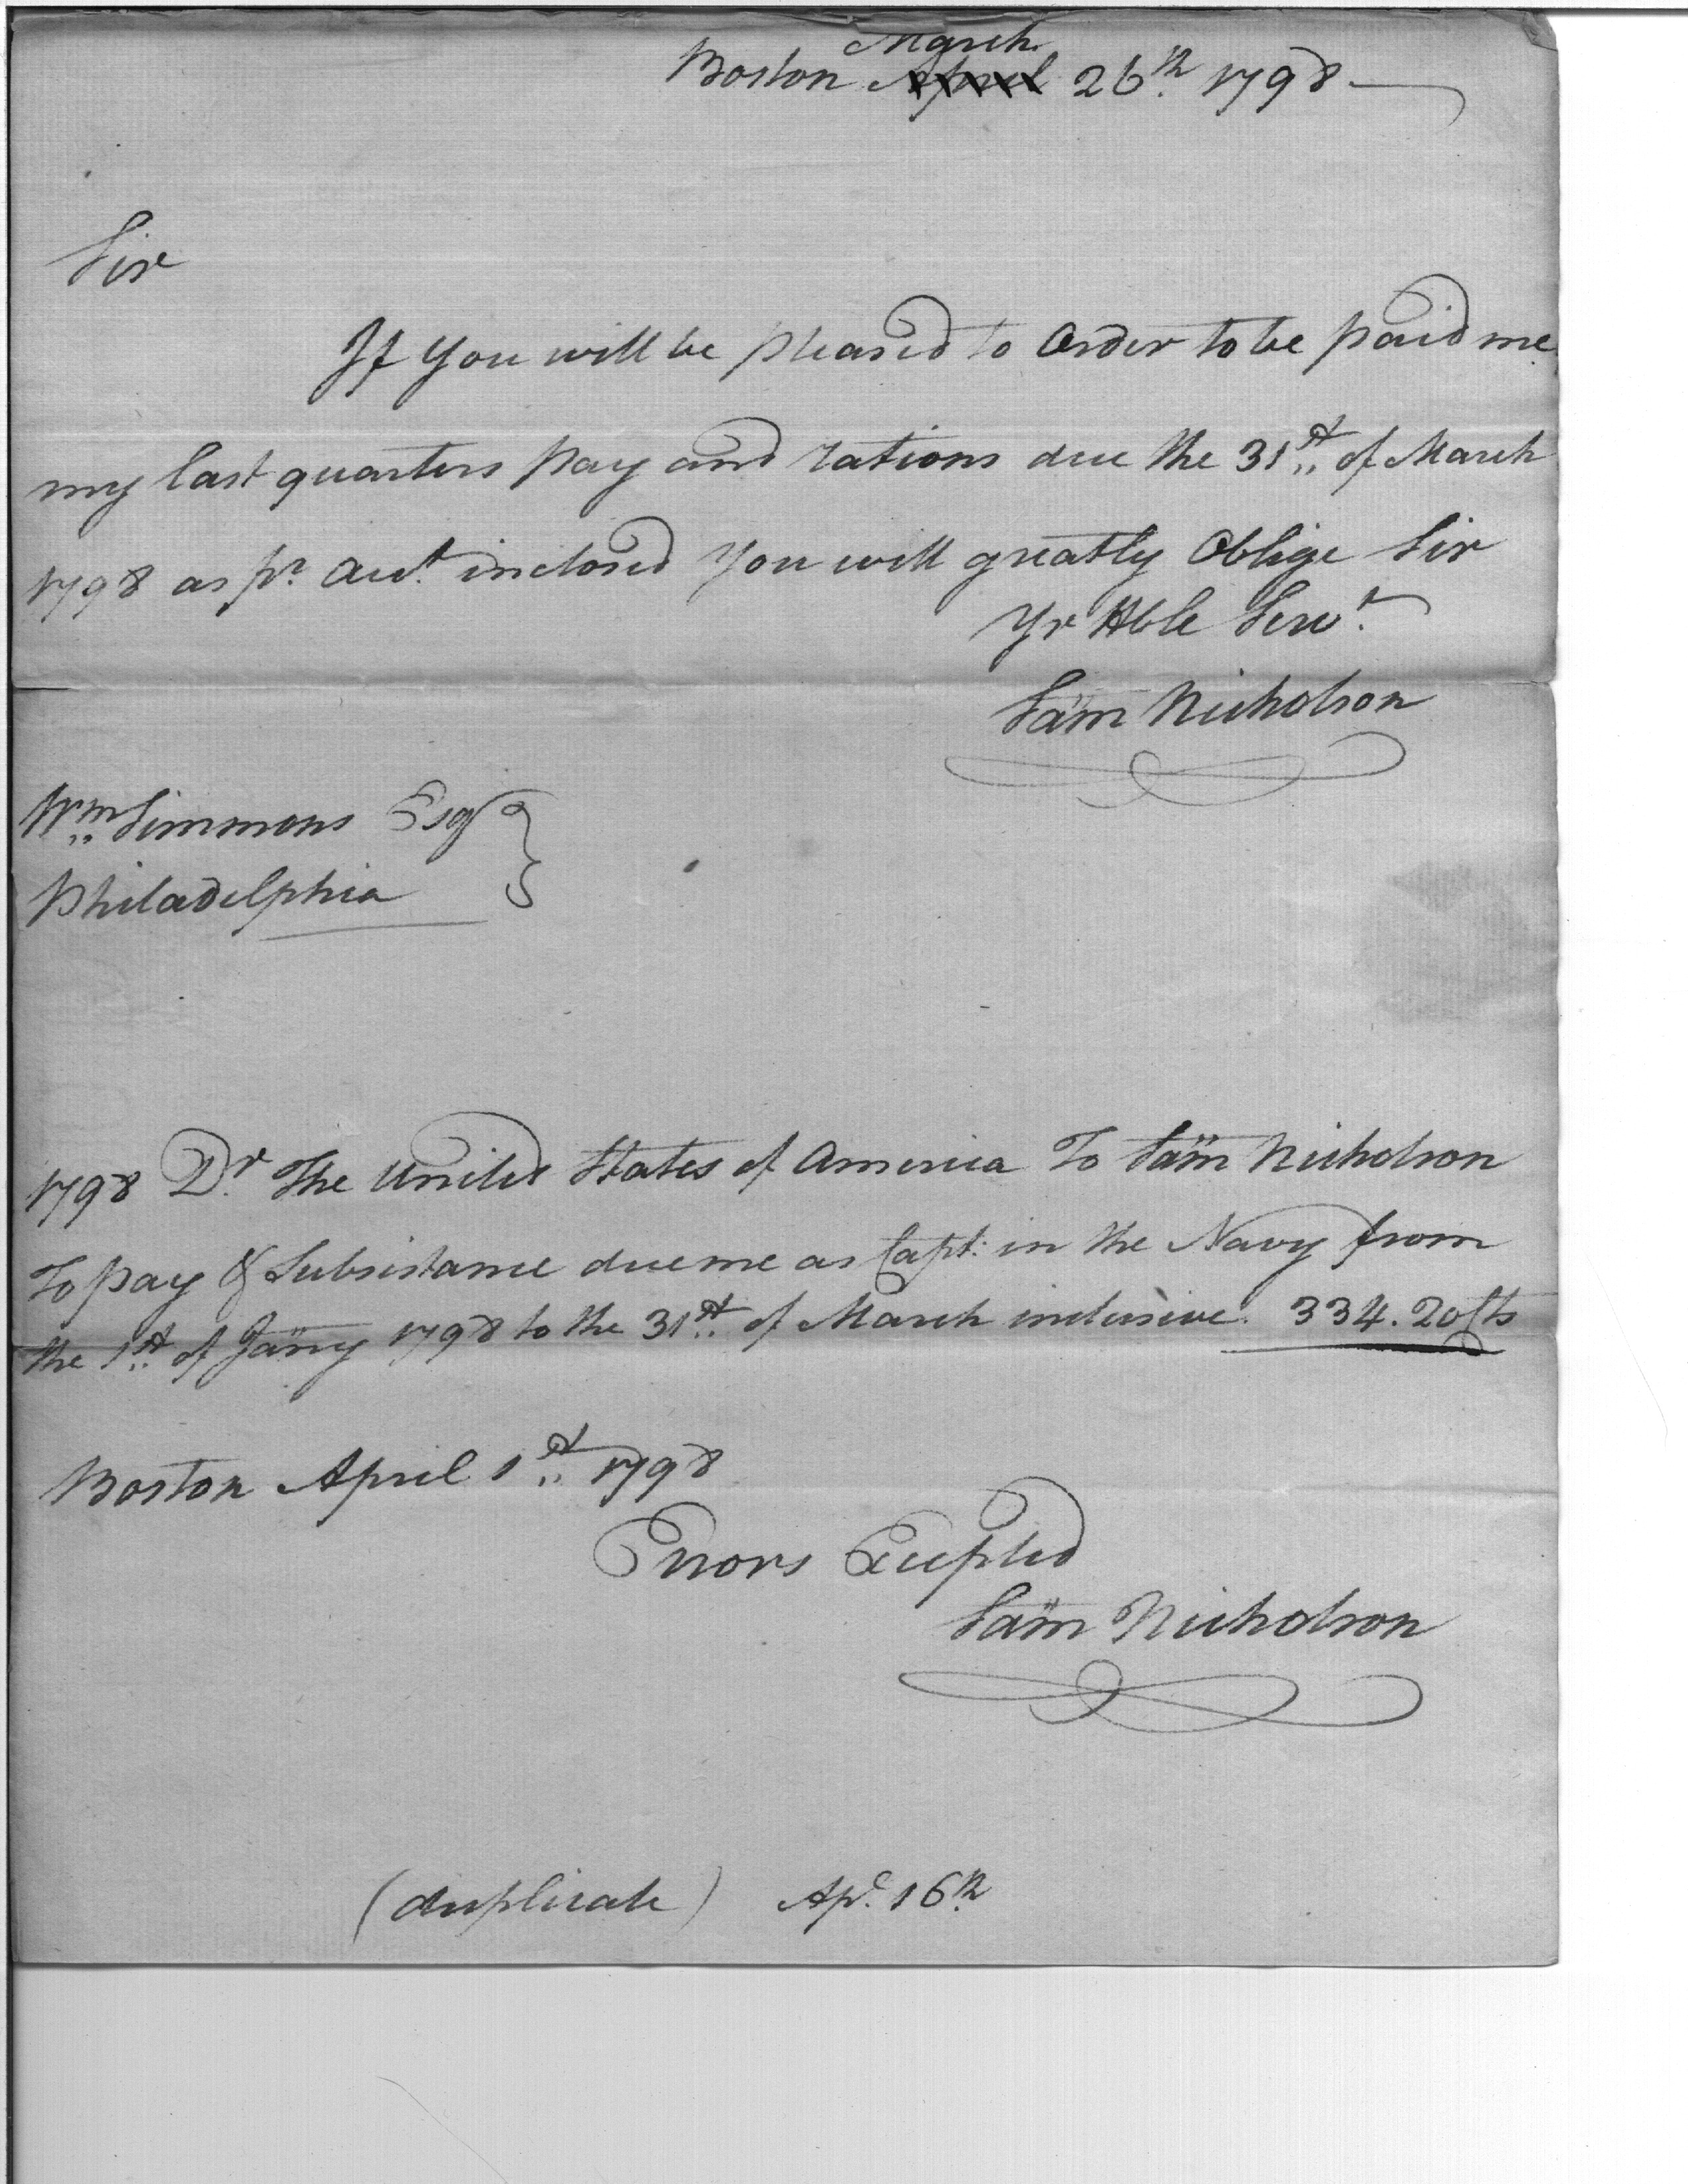 March
Boston April 26th. 1798
Sir
If You will be pleased to Order to be paid me
my last quarters pay and rations due the 31st. of March
1798 as pr. Acct. inclosed You will greatly Oblige Sir
Yr Hble Servt.
Sam Nicholson
Wm. Simmons Esqr
Philadelphia
1798 Dr. The United States of America To Sam Nicholson
To pay & Subsistance due me as Capt: in the Navy from
the 1st. of Janry 1798 to the 31st. of March inclusive. 334.20 Cts
Boston April 1st. 1798
Errors Excepted
Sam Nicholson
(duplicate) Apl. 16th.